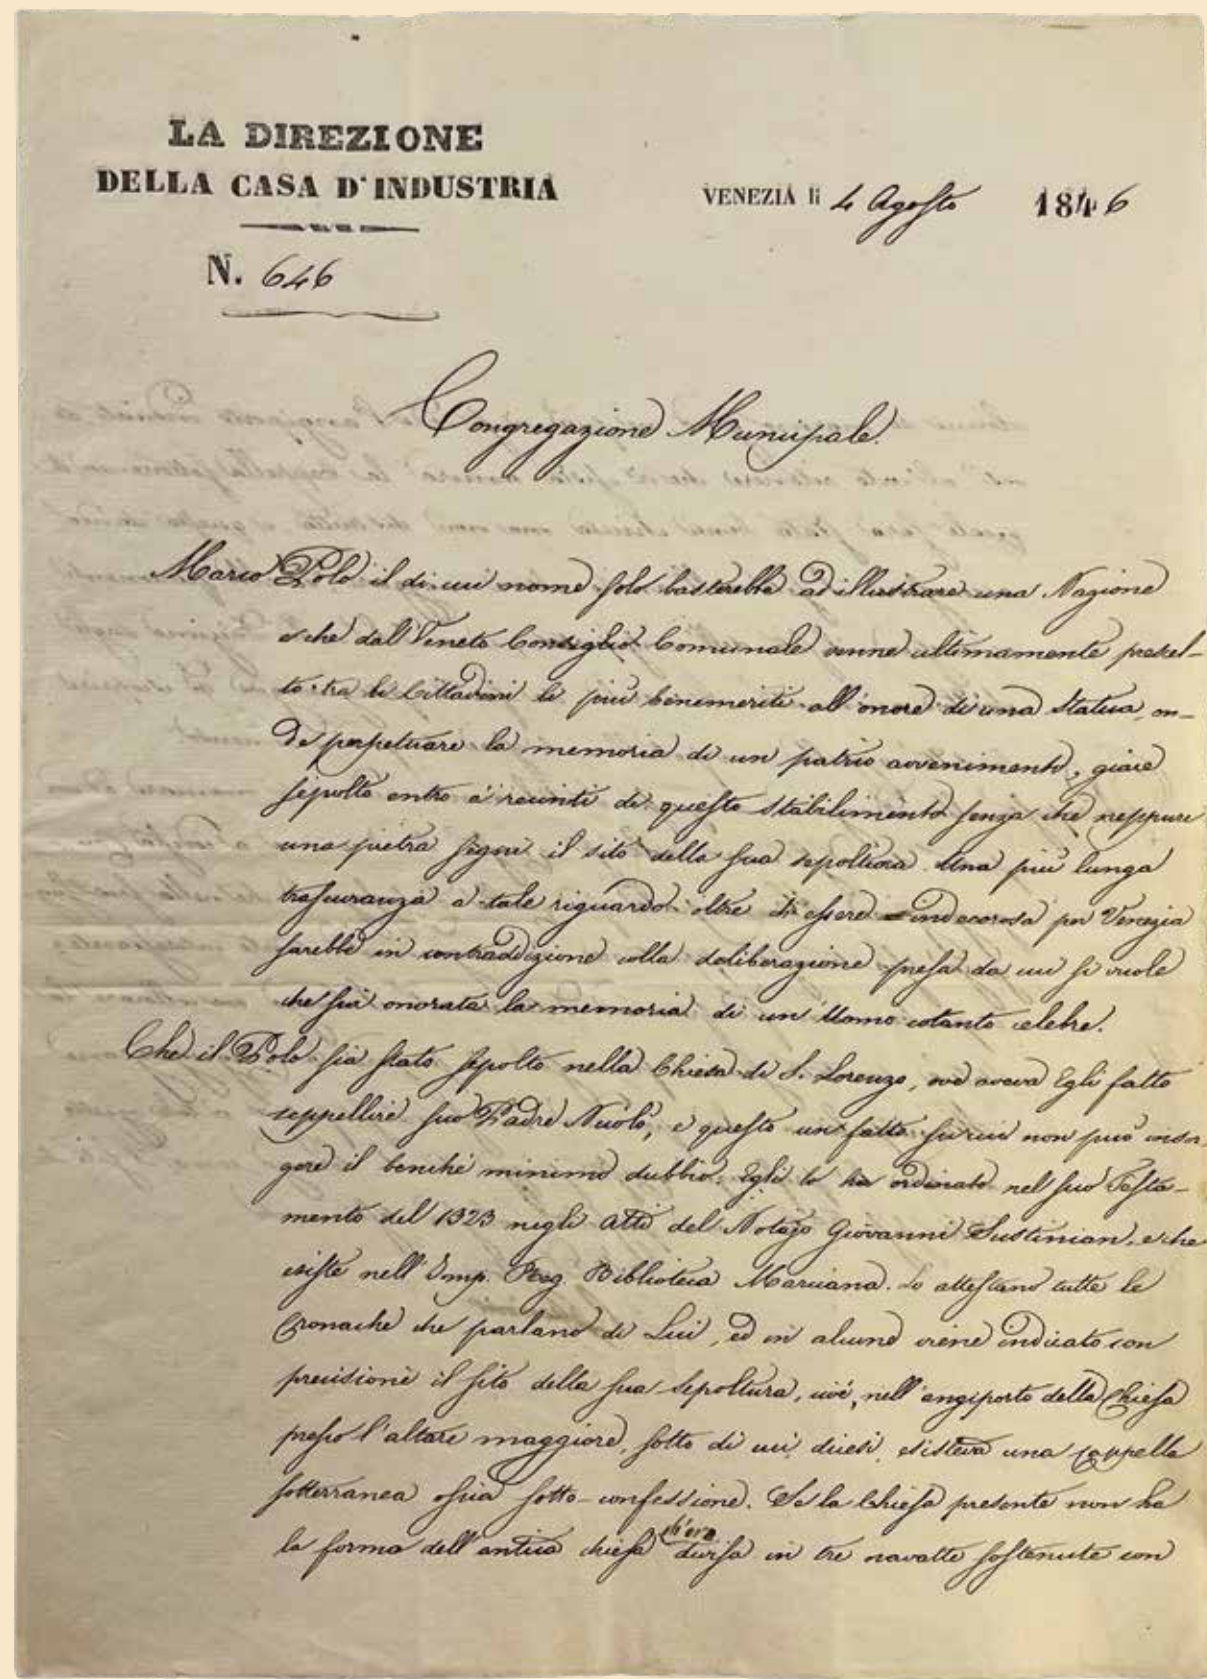 LA DIREZIONE
DELLA CASA D'INDUSTRIA
VENEZIA li 4 Agosto 1846
N. 646
Congregazione Municipale.
Marco Polo il di cui nome solo basterebbe ad illustrare una Nazione
e che dal Veneto Consiglio Comunale venne ultimamente prescel-
to tra li Cittadini li più benemeriti all'onore di una Statua, on-
de perpetuare la memoria di un patrio avvenimento, giace
sepolto entro a' recinti di questo stabilimento senza che neppure
una pietra segni il sito della sua sepoltura. Una più lunga
trascuranza a tale riguardo oltre di essere indecorosa per Venezia
sarebbe in contraddizione colla deliberazione presa da cui si vuole
che sia onorata la memoria di un Uomo cotanto celebre.
Che il Polo sia stato sepolto nella Chiesa di S. Lorenzo, ove aveva Egli fatto
seppellire suo Padre Nicolò, è questo un fatto su cui non può insor-
gere il benchè minimo dubbio. Egli lo ha ordinato nel suo Testa-
mento del 1323 negli atti del Notajo Giovanni Giustinian, e che
esiste nell'Imp. Reg. Biblioteca Marciana. Lo attestano tutte le
Cronache che parlano di Lui, ed in alcune viene indicato con
precisione il sito della sua sepoltura, cioè, nell'angiporto della Chiesa
presso l'altare maggiore, sotto di cui, dicesi, esisteva una cappella
sotterranea ossia sotto-confessione. Se la Chiesa presente non ha
la forma dell'antica chiesa ch'era divisa in tre navatte sostenute con